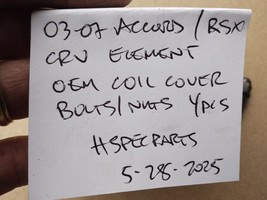 03-07 ACCORD/RSX
CRV ELEMENT
OEM COIL COVER
BOLTS/NUTS 4PCS
#SPECPARTS
5-28-2025